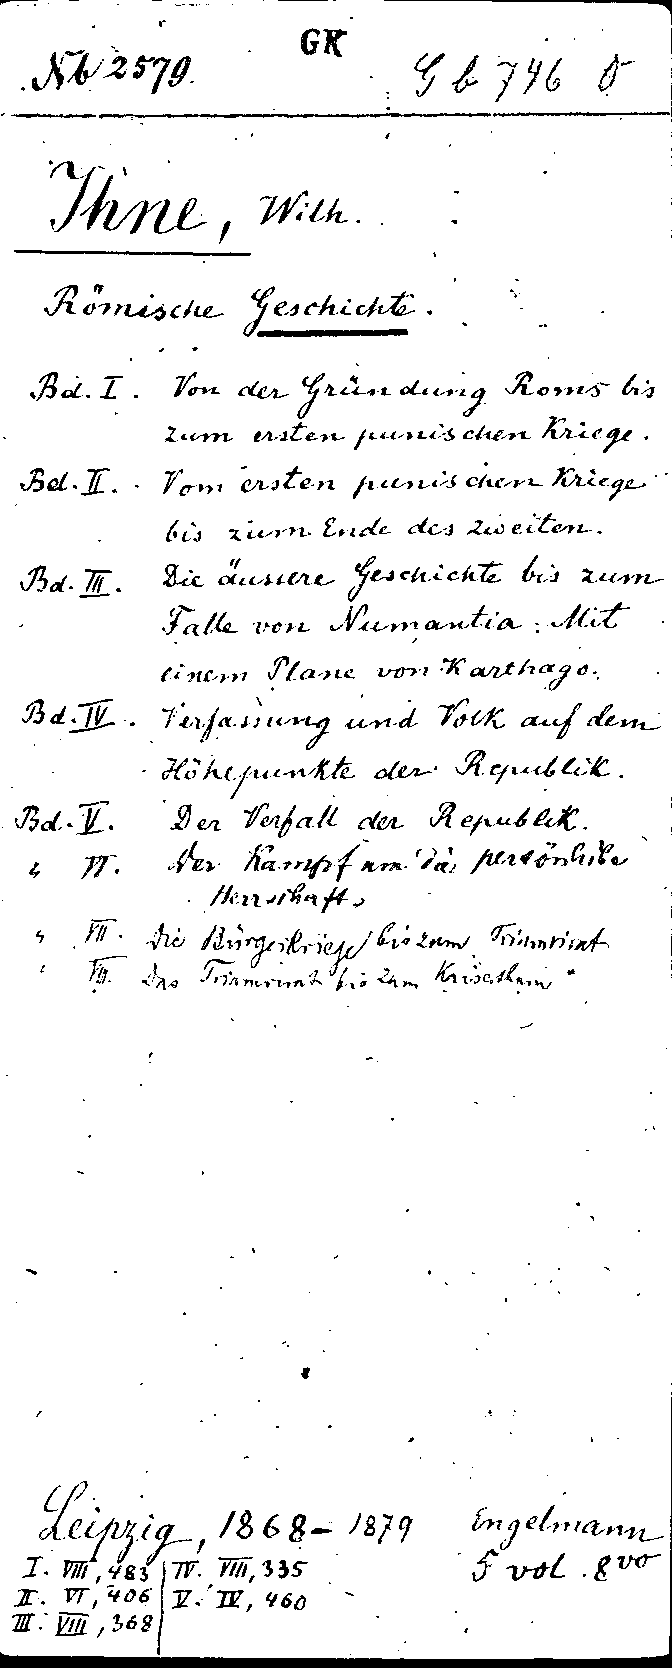 GK
Nb 2579.
Gb 746 o
Ihne, Wilh.
Römische Geschichte.
Bd. I. Von der Gründung Roms bis
zum ersten punischen Kriege.
Bd. II. Vom ersten punischen Kriege
bis zum Ende des zweiten.
Bd. III. Die äussere Geschichte bis zum
Falle von Numantia. Mit
einem Plane von Karthago.
Bd. IV. Verfassung und Volk auf dem
Höhepunkte der Republik.
Bd. V. Der Verfall der Republik.
" VI. Der Kampf um die persönliche
Herrschaft.
" VII. Die Bürgerkriege bis zum Triumvirat
" VIII. Das Triumvirat bis zum Kaiserthum
Leipzig, 1868-1879 Engelmann
5 vol. 8vo
I. VIII, 483 IV. VIII, 335
II. VI, 406 V. IV, 460
III. VIII, 368